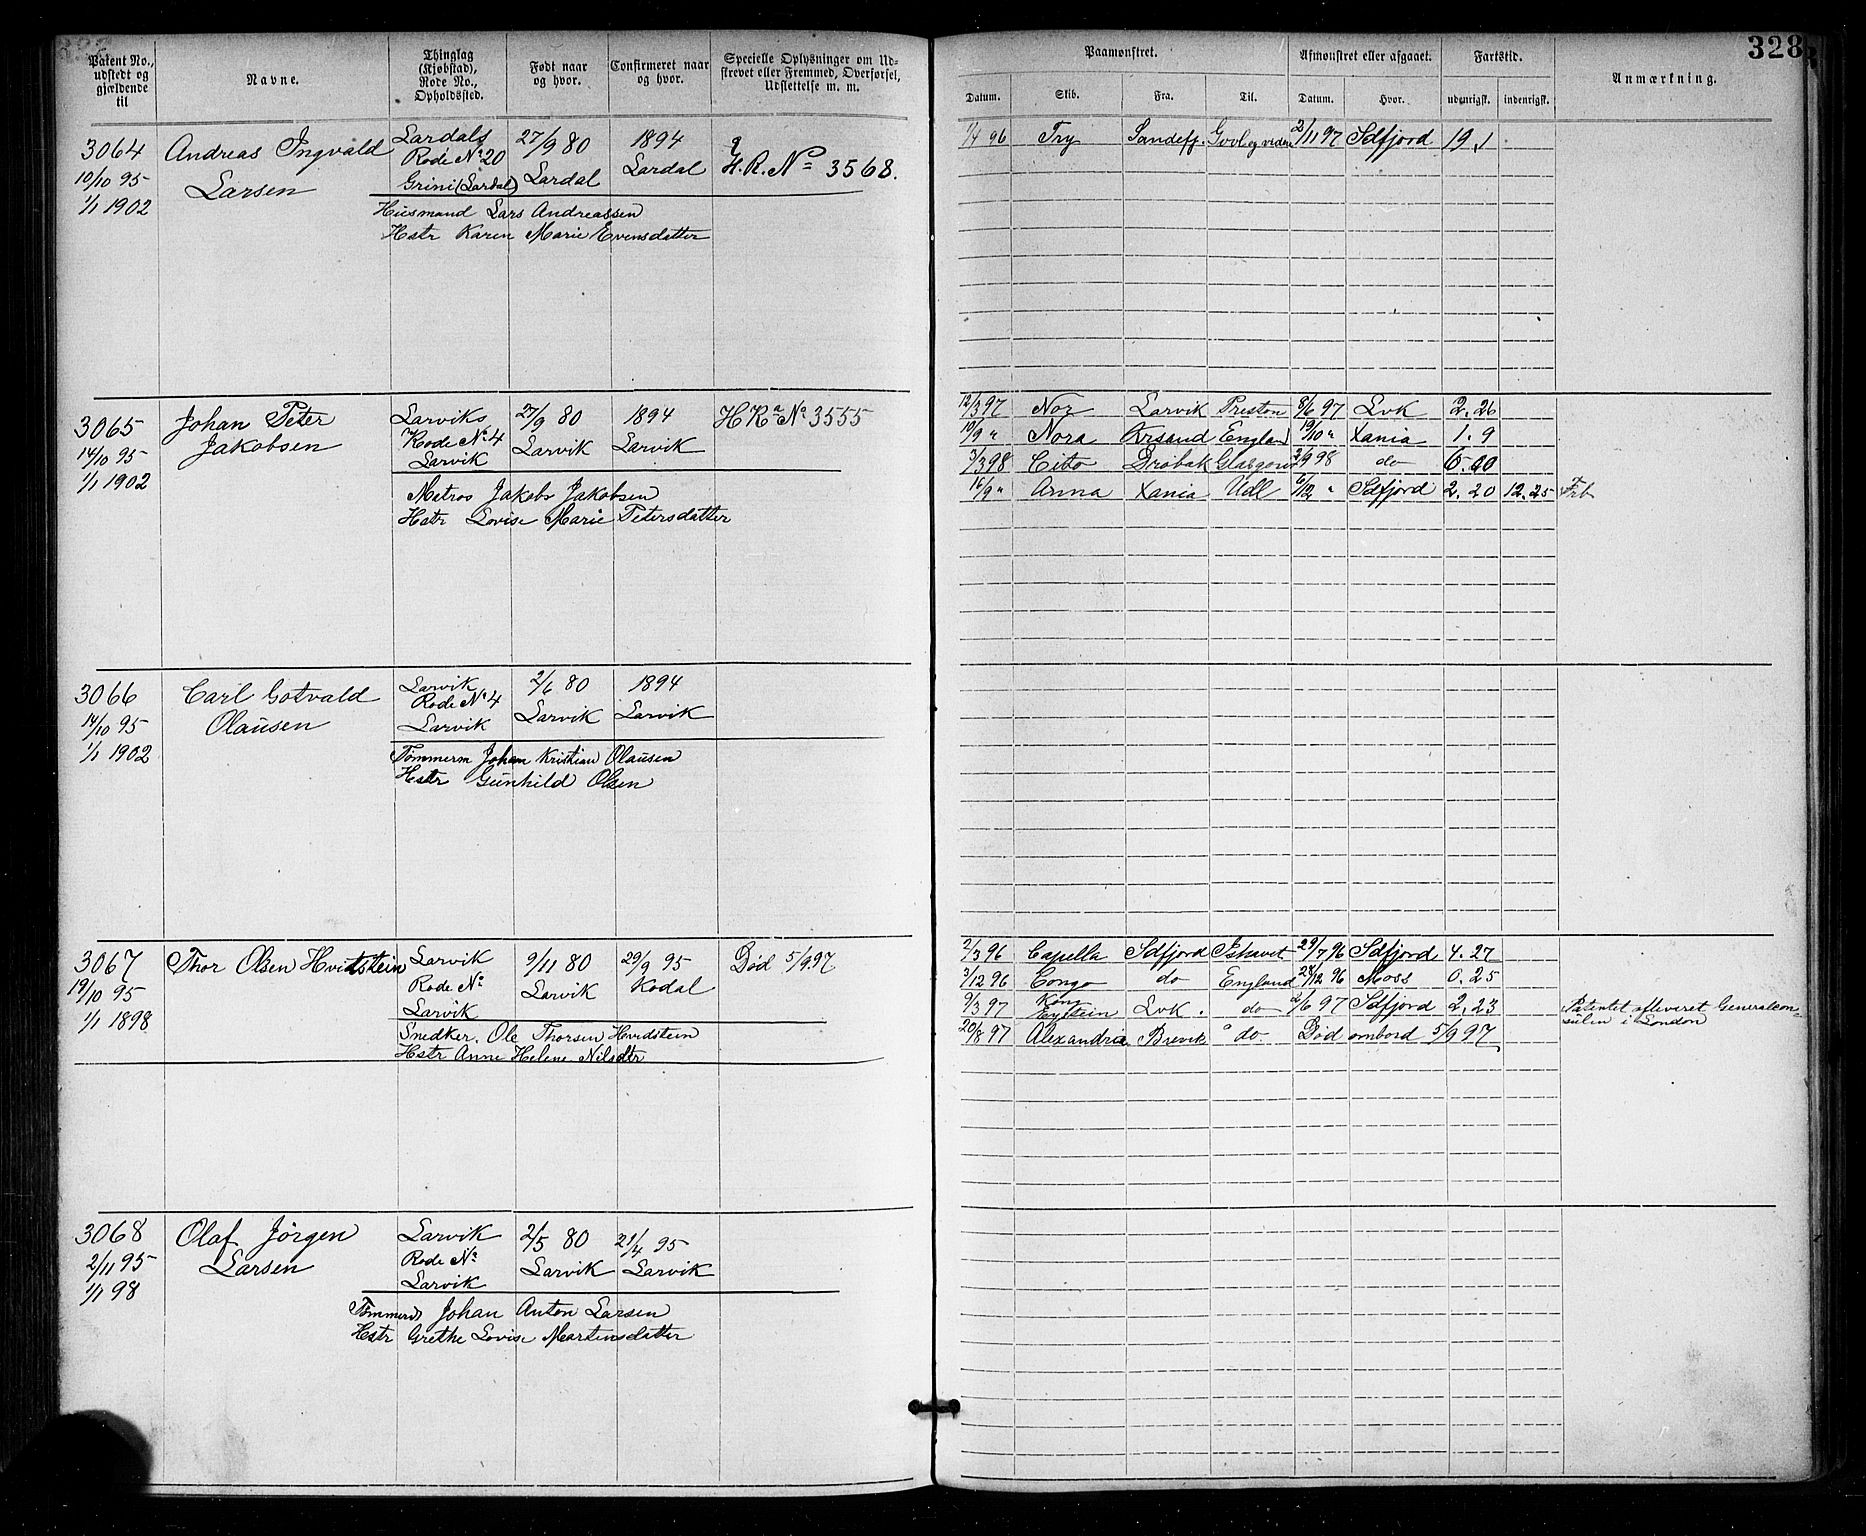 328
Patent No., udstedt og gjældende til
Navne.
Thinglag (Kjøbstad), Rode No., Opholdssted.
Født naar og hvor.
Confirmeret naar og hvor.
Specielle Oplysninger om Udskrevet eller Fremmed, Overførsel, Udslettelse m. m.
Paamønstret.
Afmønstret eller afgaaet.
Fartstid.
Anmærkning.
Datum. Skib. Fra. Til. Datum. Hvor. udenrigsk. indenrigsk.
3064 Andreas Ingvald Lardals 27/9 80 1894
10/10 95 Larsen Rode No 20 Lardal Lardal H. R. No 3568.
1/1 1902 Grini (Lardal)
Husmand Lars Andreassen
Hstr Karen Marie Evensdatter
1/4 96 Try Sandefj. Govl og videre 2/11 97 Sdfjord 19.1
3065 Johan Peter Larviks 27/9 80 1894 H Ra No 3555
14/10 95 Jakobsen Rode No 4 Larvik Larvik
1/1 1902 Larvik
Matros Jakob Jakobsen
Hstr Lovise Marie Petersdatter
12/3 97 Nor Larvik Preston 8/6 97 Lvk 2.26
10/9 " Nora Krsand England 19/10 " Xania 1.9
3/3 98 Cito Drøbak Glasgow 2/9 98 do 6.00
16/9 " Anna Xania Udl 6/12 " Sdfjord 2.20 12.25 Frb
3066 Carl Gotvald Larvik 2/6 80 1894
14/10 95 Olausen Rode No 4 Larvik Larvik
1/1 1902 Larvik
Tømmerm Johan Kristian Olausen
Hstr Gunhild Olsen
3067 Thor Olsen Hvidstein Larvik 9/11 80 29/9 95 Død 5/9 97
19/10 95 Rode No Larvik Kodal
1/1 1898 Larvik
Snedker. Ole Thorsen Hvidstein
Hstr Anne Helene Nilsdtr
2/3 96 Capella Sdfjord Ishavet 29/7 96 Sdfjord 4.27
3/12 96 Congo do England 28/12 96 Moss 0.25
9/3 97 Kong Eystein Lvk. do 2/6 97 Sdfjord 2.23
20/8 97 Alexandria Brevik do. Død ombord 5/9 97
Patentet afleveret Generalcon-
sulen i London
3068 Olaf Jörgen Larvik 2/5 80 21/4 95
2/11 95 Larsen Rode No Larvik Larvik
1/1 98 Larvik
Tømmerm Johan Anton Larsen
Hstr Grethe Lovise Martinsdatter